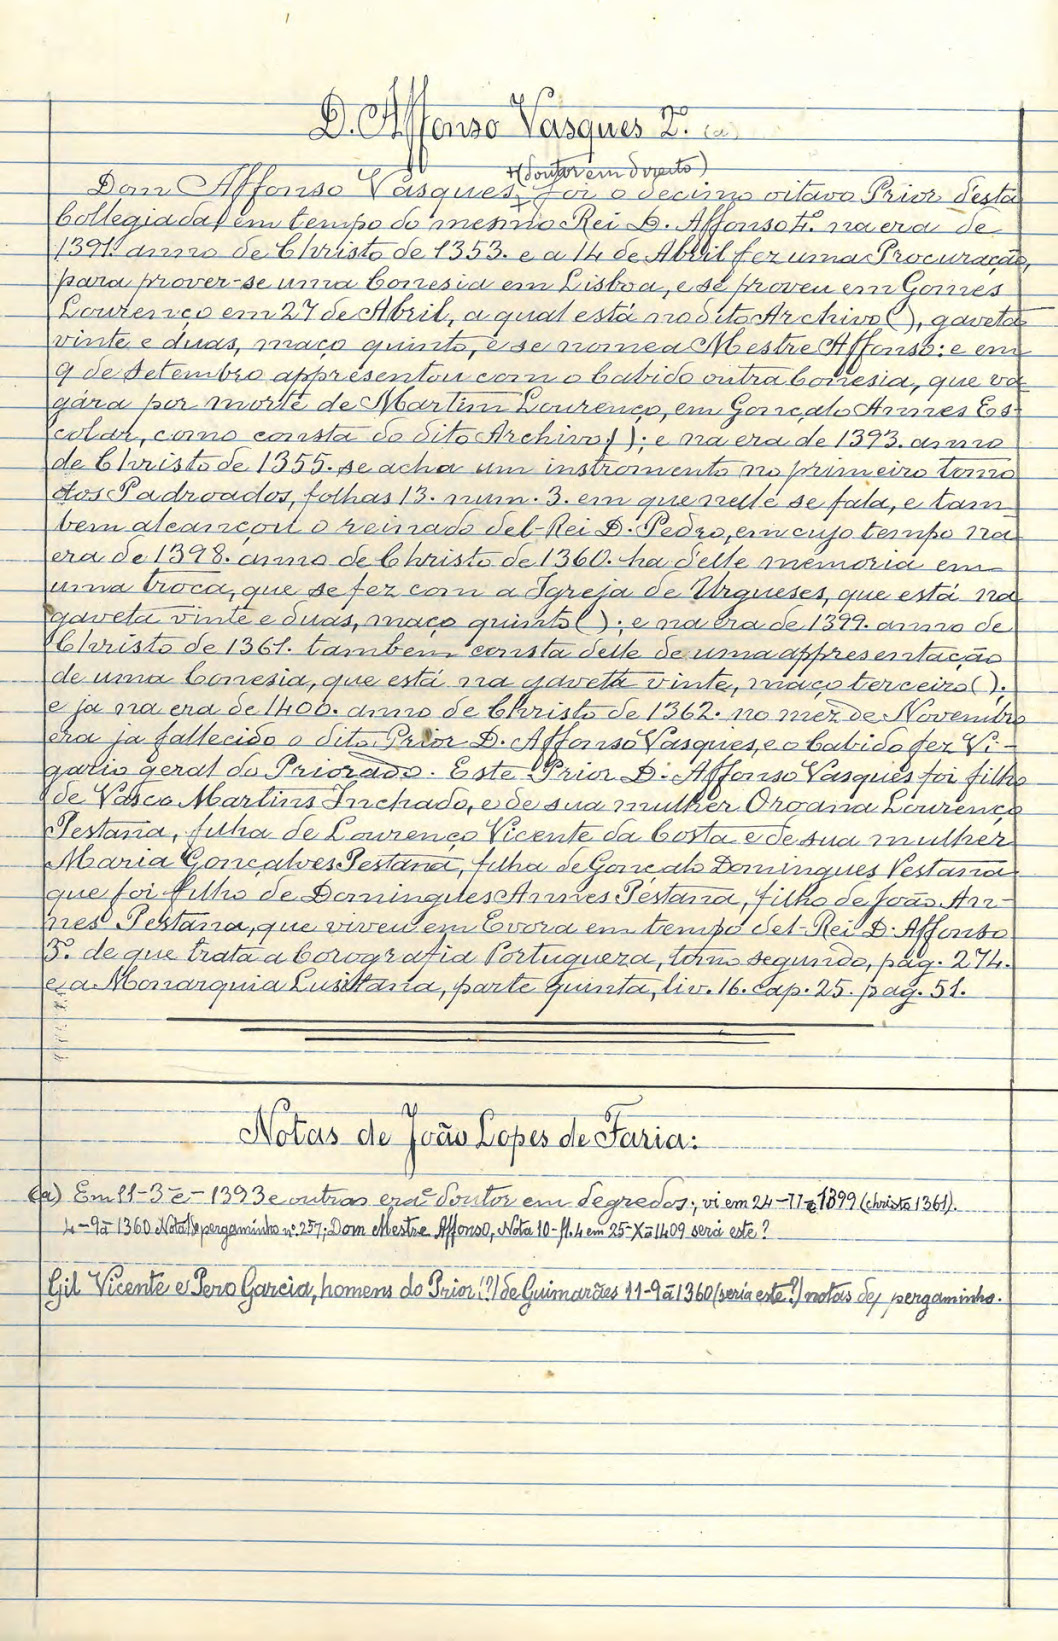 D. Affonso Vasques 2.º (a)
+(doutor em direito)
Dom Affonso Vasques, + foi o decimo oitavo Prior d'esta
Collegiada, em tempo do mesmo Rei D. Affonso 4.º na era de
1391. anno de Christo de 1353. e a 14 de Abril fez uma Procuração,
para prover-se uma Conesia em Lisboa, e se proveu em Gomes
Lourenço em 27 de Abril, a qual está no dito Archivo ( ), gaveta
vinte e duas, maço quinto, e se nomea Mestre Affonso: e em
9 de Setembro appresentou com o Cabido outra Conesia, que va-
gára por morte de Martim Lourenço, em Gonçalo Annes Es-
colar, como consta do dito Archivo ( ); e na era de 1393. anno
de Christo de 1355. se acha um instromento no primeiro tomo
dos Padroados, folhas 13. num. 3. em que nelle se fala, e tam
bem alcançou o reinado del-Rei D. Pedro, em cujo tempo na
era de 1398. anno de Christo de 1360. ha d'elle memoria em
uma troca, que se fez com a Igreja de Urgueses, que está na
gaveta vinte e duas, maço quinto ( ); e na era de 1399. anno de
Christo de 1361. tambem consta delle de uma appresentação
de uma Conesia, que está na gaveta vinte, maço terceiro ( ).
e ja na era de 1400. anno de Christo de 1362. no mez de Novembro
era ja fallecido o dito Prior D. Affonso Vasques, e o Cabido fez Vi-
gario geral do Priorado. Este Prior D. Affonso Vasques foi filho
de Vasco Martins Inchado, e de sua mulher Oroana Lourenço
Pestana, filha de Lourenço Vicente da Costa e de sua mulher
Maria Gonçalves Pestana, filha de Gonçalo Domingues Pestana
que foi filho de Domingues Annes Pestana, filho de João An-
nes Pestana, que viveu em Evora em tempo del-Rei D. Affonso
3.º de que trata a Corografia Portugueza, tomo segundo, pag. 274.
e a Monarquia Lusitana, parte quinta, liv. 16. cap. 25. pag. 51.
Notas de João Lopes de Faria:
(a) Em 11-3-ê-1393 e outras eras doutor em degredos; vi em 24-11-ê 1399 (christo 1361).
4-9-ã 1360 Nota de pergaminho n.º 257; Dom Mestre Affonso, Nota 10-fl.4 em 25-X-ã 1409 será este?
Gil Vicente e Pero Garcia, homens do Prior (?) de Guimarães 11-9-ã 1360 (seria este?) notas de pergaminho.